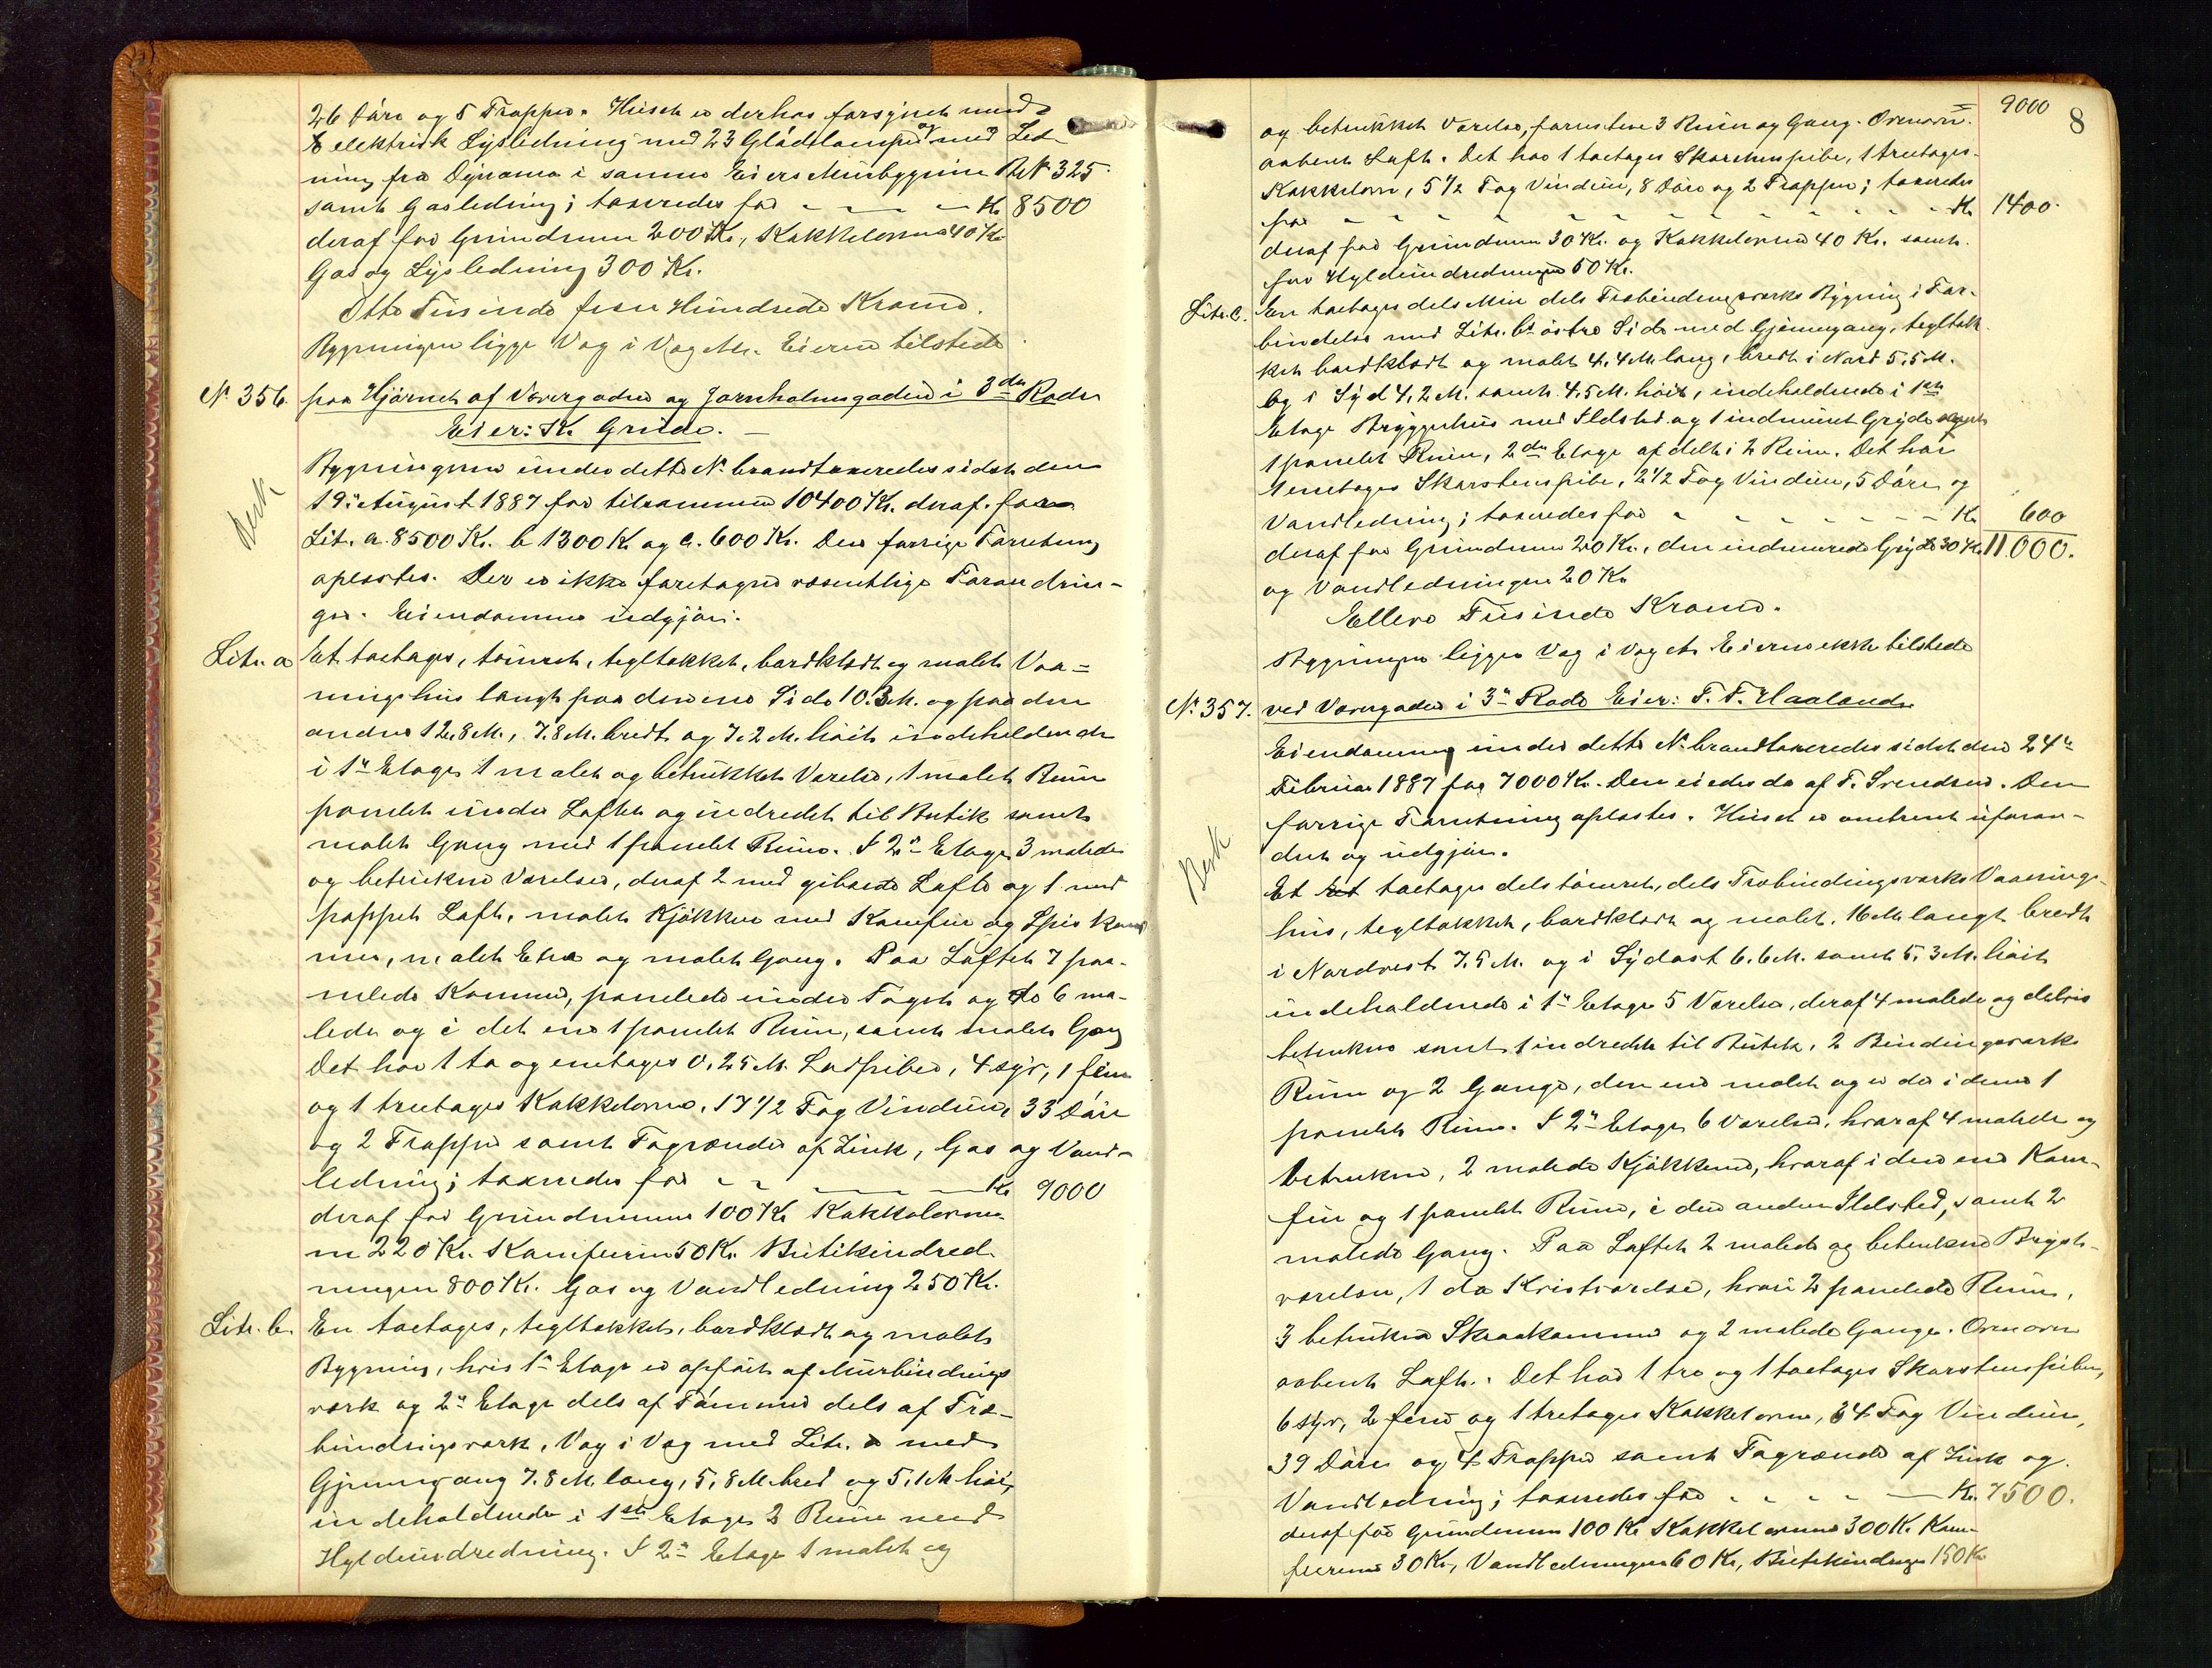 26 Döre og 5 Trapper. Huset er derhos forsynet med
elektrisk Lysledning med 23 Glødelamper og med Led-
ning fra Dynamo i samme Eiers Murbygning B.N 325
samt Gasledning; taxeredes for - - - Kr 8500
deraf for Grundmuren 200 Kr., Kakkelovnene 40 Kr.
Gas og Lysledning 300 Kr.
Otte Tusinde fem Hundrede Kroner.
Bygningen ligger Væg i Væg etc. Eieren tilstede.
N. 356. paa Hjørnet af Vævergaden og Jorenholmsgaden i 3die Rode
Eier: K. Grude.
Berk
Bygningerne under dette N. brandtaxeredes sidst den
19. August 1887 for tilsammen 10400 Kr. deraf for
Lit. a. 8500 Kr. b 1300 Kr og c. 600 Kr. Den forrige Forretning
oplæstes. Der er ikke foretagne væsentlige Forandrin-
ger. Eiendommen udgjør:
Litr. a Et toetages, tömret, tegltækket, bordklædt og malet Vaa-
ningshus langt paa den ene Side 10.3 M. og paa den
anden 12,8 M., 7.8 M. bredt og 7,2 M. höit indeholdende
i 1e Etage 1 malet og betrukket Værelse, 1 malet Rum
panelet under Loftet og indredet til Butik samt
malet Gang med 1 panelet Rum. I 2n Etage 3 malede
og betrukne Værelser, deraf 2 med gibsede Lofte og 1 med
pappet Loft, malet Kjökken med Komfur og Spiskam-
mer, malet Etra og malet Gang. Paa Loftet 7 pa-
nelede Kamre, panelede under Taget og do 6 ma-
lede og i det ene 1 panelet Rum, samt malet Gang
Det har 1 to og enetages 0,25 M. Ludpiber, 4 syv, 1 fem
og 1 treetages Kakkelovne, 17 1/2 Fag Vinduer, 33 Döre
og 2 Trapper samt Tagrænder af Zink, Gas og Vand-
ledning; taxeredes for - - - Kr 9000
deraf for Grundmuren 100 Kr Kakkelovne-
ne 220 Kr. Komfuren 50 Kr. Butikindred-
ningen 800 Kr. Gas og Vandledning 250 Kr.
Litr. b. En toetages, tegltækket, bordklædt og malet
Bygning, hvis 1e Etage er opført af Murbindings
værk og 2n Etage dels af Tömmer dels af Træ-
bindingsværk, Væg i Væg med Litr. a med
Gjennemgang 7.8 M. lang, 5,8 M. bred og 5,1 M höi,
indeholdende i 1ste Etage 2 Rum med
Hyldeindredning. I 2n Etage 1 malet og
8
9000
og betrukket Værelse, foruden 3 Rum og Gang. Ovenover
aabent Loft. Det har 1 toetages Skorstenspibe, 1 treetages
Kakkelovn, 5 1/2 Fag Vinduer, 8 Döre og 2 Trapper; taxeredes
for - - - Kr 1400.
deraf for Grundmuren 30 Kr. og Kakkelovnen 40 Kr. samt
for Hyldeindredningen 50 Kr.
Litr. C. En toetages dels Mur dels Træbindingsværks Bygning i For-
bindelse med Litr. b's östre Side med Gjennemgang, tegltæk-
ket bordklædt og malet 4,4 M. lang, bredt i Nord 5,5 M.
og i Syd 4,2 M. samt 4,5 M. höit, indeholdende i 1ste
Etage Bryggerhus med Ildsted og 1 indmuret Gryde samt
1 panelet Rum, 2den Etage afdelt i 2 Rum. Det har
1 enetages Skorstenspibe, 2 1/2 Fag Vinduer, 5 Döre og
Vandledning; taxeredes for - - - Kr 600
deraf for Grundmuren 20 Kr., den indmurede Gryde 30 Kr 11.000.
og Vandledningen 20 Kr
Elleve Tusinde Kroner.
Bygningen ligger Væg i Væg etc Eieren ikke tilstede
N. 357. ved Vævergaden i 3e Rode Eier: T. T. Haaland.
Eiendommen under dette N. brandtaxeredes sidst den 24e
Februar 1887 for 7000 Kr. Den eiedes da af T. Svendsen. Den
forrige Forretning oplæstes. Huset er omtrent uforan-
dret og udgjør.
Berk
Et toetages dels tömret, dels Træbindingsværks Vaanings-
hus, tegltækket, bordklædt og malet. 16 M. langt bredt
i Nordvest 7,5 M. og i Sydøst 6.6 M. samt 5,3 M. höit
indeholdende i 1e Etage 5 Værelser, deraf 4 malede og delvis
betrukne samt 1 indredet til Butik, 2 Bindingsværks
Rum og 2 Gange, den ene malet og er der i denne 1
panelet Rum. I 2n Etage 6 Værelser, hvoraf 4 malede og
betrukne, 2 malede Kjökkener, hvoraf i den ene Kom-
fur og 1 panelet Rum, i den anden Ildsted, samt 2
malede Gang. Paa Loftet 2 malede og betrukne Bryst-
værelser, 1 do Kvistværelse, hvori 2 panelede Rum,
3 betrukne Skraakammere og 2 malede Gange. Ovenover
aabent Loft. Det har 1 tre og 1 toetages Skorstenspiber,
6 syv, 2 fem og 1 tretages Kakkelovne, 34 Fag Vinduer,
39 Döre og 4 Trapper samt Tagrænder af Zink og
Vandledning; taxeredes for - - - Kr. 7500.
deraf for Grundmuren 100 Kr Kakkelovnene 300 Kr. Kom-
furerne 30 Kr, Vandledningen 60 Kr, Butikindregn 150 Kr